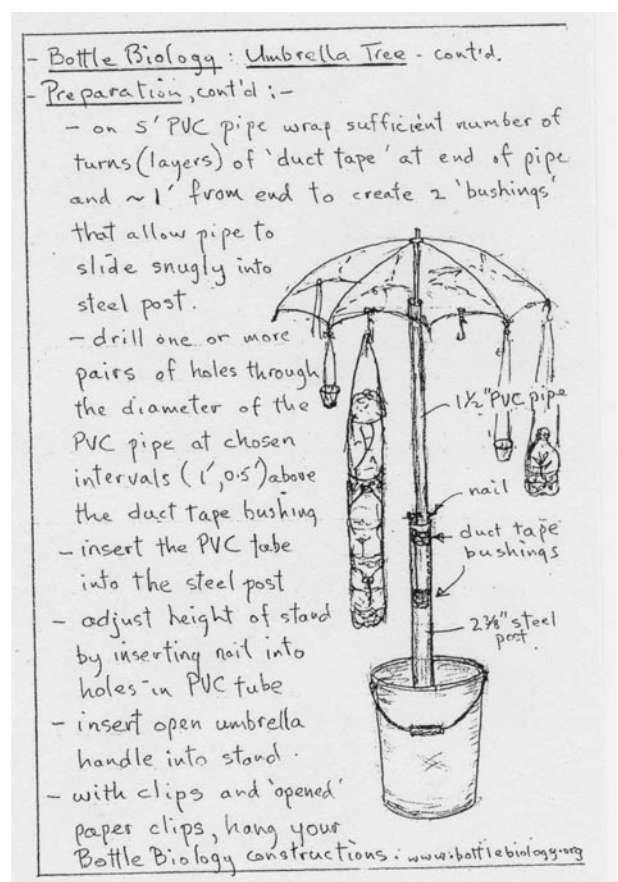 - Bottle Biology : Umbrella Tree - cont'd.
- Preparation, cont'd :-
- on 5' PVC pipe wrap sufficient number of
turns (layers) of 'duct tape' at end of pipe
and ~ 1' from end to create 2 'bushings'
that allow pipe to
slide snugly into
steel post.
- drill one or more
pairs of holes through
the diameter of the
PVC pipe at chosen
intervals (1', 0.5') above
the duct tape bushing
- insert the PVC tube
into the steel post
- adjust height of stand
by inserting nail into
holes in PVC tube
- insert open umbrella
handle into stand.
- with clips and 'opened'
paper clips, hang your
Bottle Biology constructions: www.bottlebiology.org
1½" PVC pipe
nail
duct tape
bushings
2⅜" steel
post.